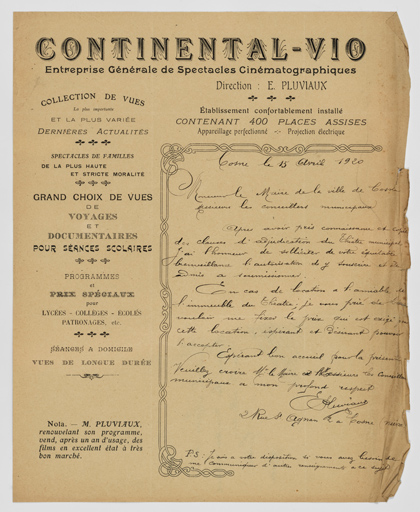 CONTINENTAL-VIO
Entreprise Générale de Spectacles Cinématographiques
Direction : E. PLUVIAUX
Établissement confortablement installé
CONTENANT 400 PLACES ASSISES
Appareillage perfectionné — Projection électrique
COLLECTION DE VUES
La plus importante
ET LA PLUS VARIÉE
DERNIÈRES ACTUALITÉS
SPECTACLES DE FAMILLES
DE LA PLUS HAUTE
ET STRICTE MORALITÉ
GRAND CHOIX DE VUES
DE
VOYAGES
ET
DOCUMENTAIRES
POUR SÉANCES SCOLAIRES
PROGRAMMES
et
PRIX SPÉCIAUX
pour
LYCÉES - COLLÈGES - ÉCOLES
PATRONAGES, etc.
SÉANCES A DOMICILE
VUES DE LONGUE DURÉE
Nota. — M. PLUVIAUX,
renouvelant son programme,
vend, après un an d'usage, des
films en excellent état à très
bon marché.
Cosne le 15 Avril 1920
Monsieur le Maire de la ville de Cosne
Messieurs les conseillers municipaux
Après avoir pris connaissance et
des clauses d'adjudication du théâtre municipal
j'ai l'honneur de solliciter de votre
bienveillance l'autorisation d'y
En cas de location à l'amiable de
l'immeuble du Théâtre, je vous prie de
vouloir me fixer le prix qui est exigé
cette location, espérant et pouvoir
l'accepter.
Espérant bon accueil pour la présente
Veuillez croire Mr le Maire et Messieurs les Conseillers
municipaux à mon profond respect
E Pluviaux
2 Rue St Agnan à Cosne
P.S. Je suis à votre disposition si vous avez besoin de
me communiquer d'autres renseignements à ce sujet